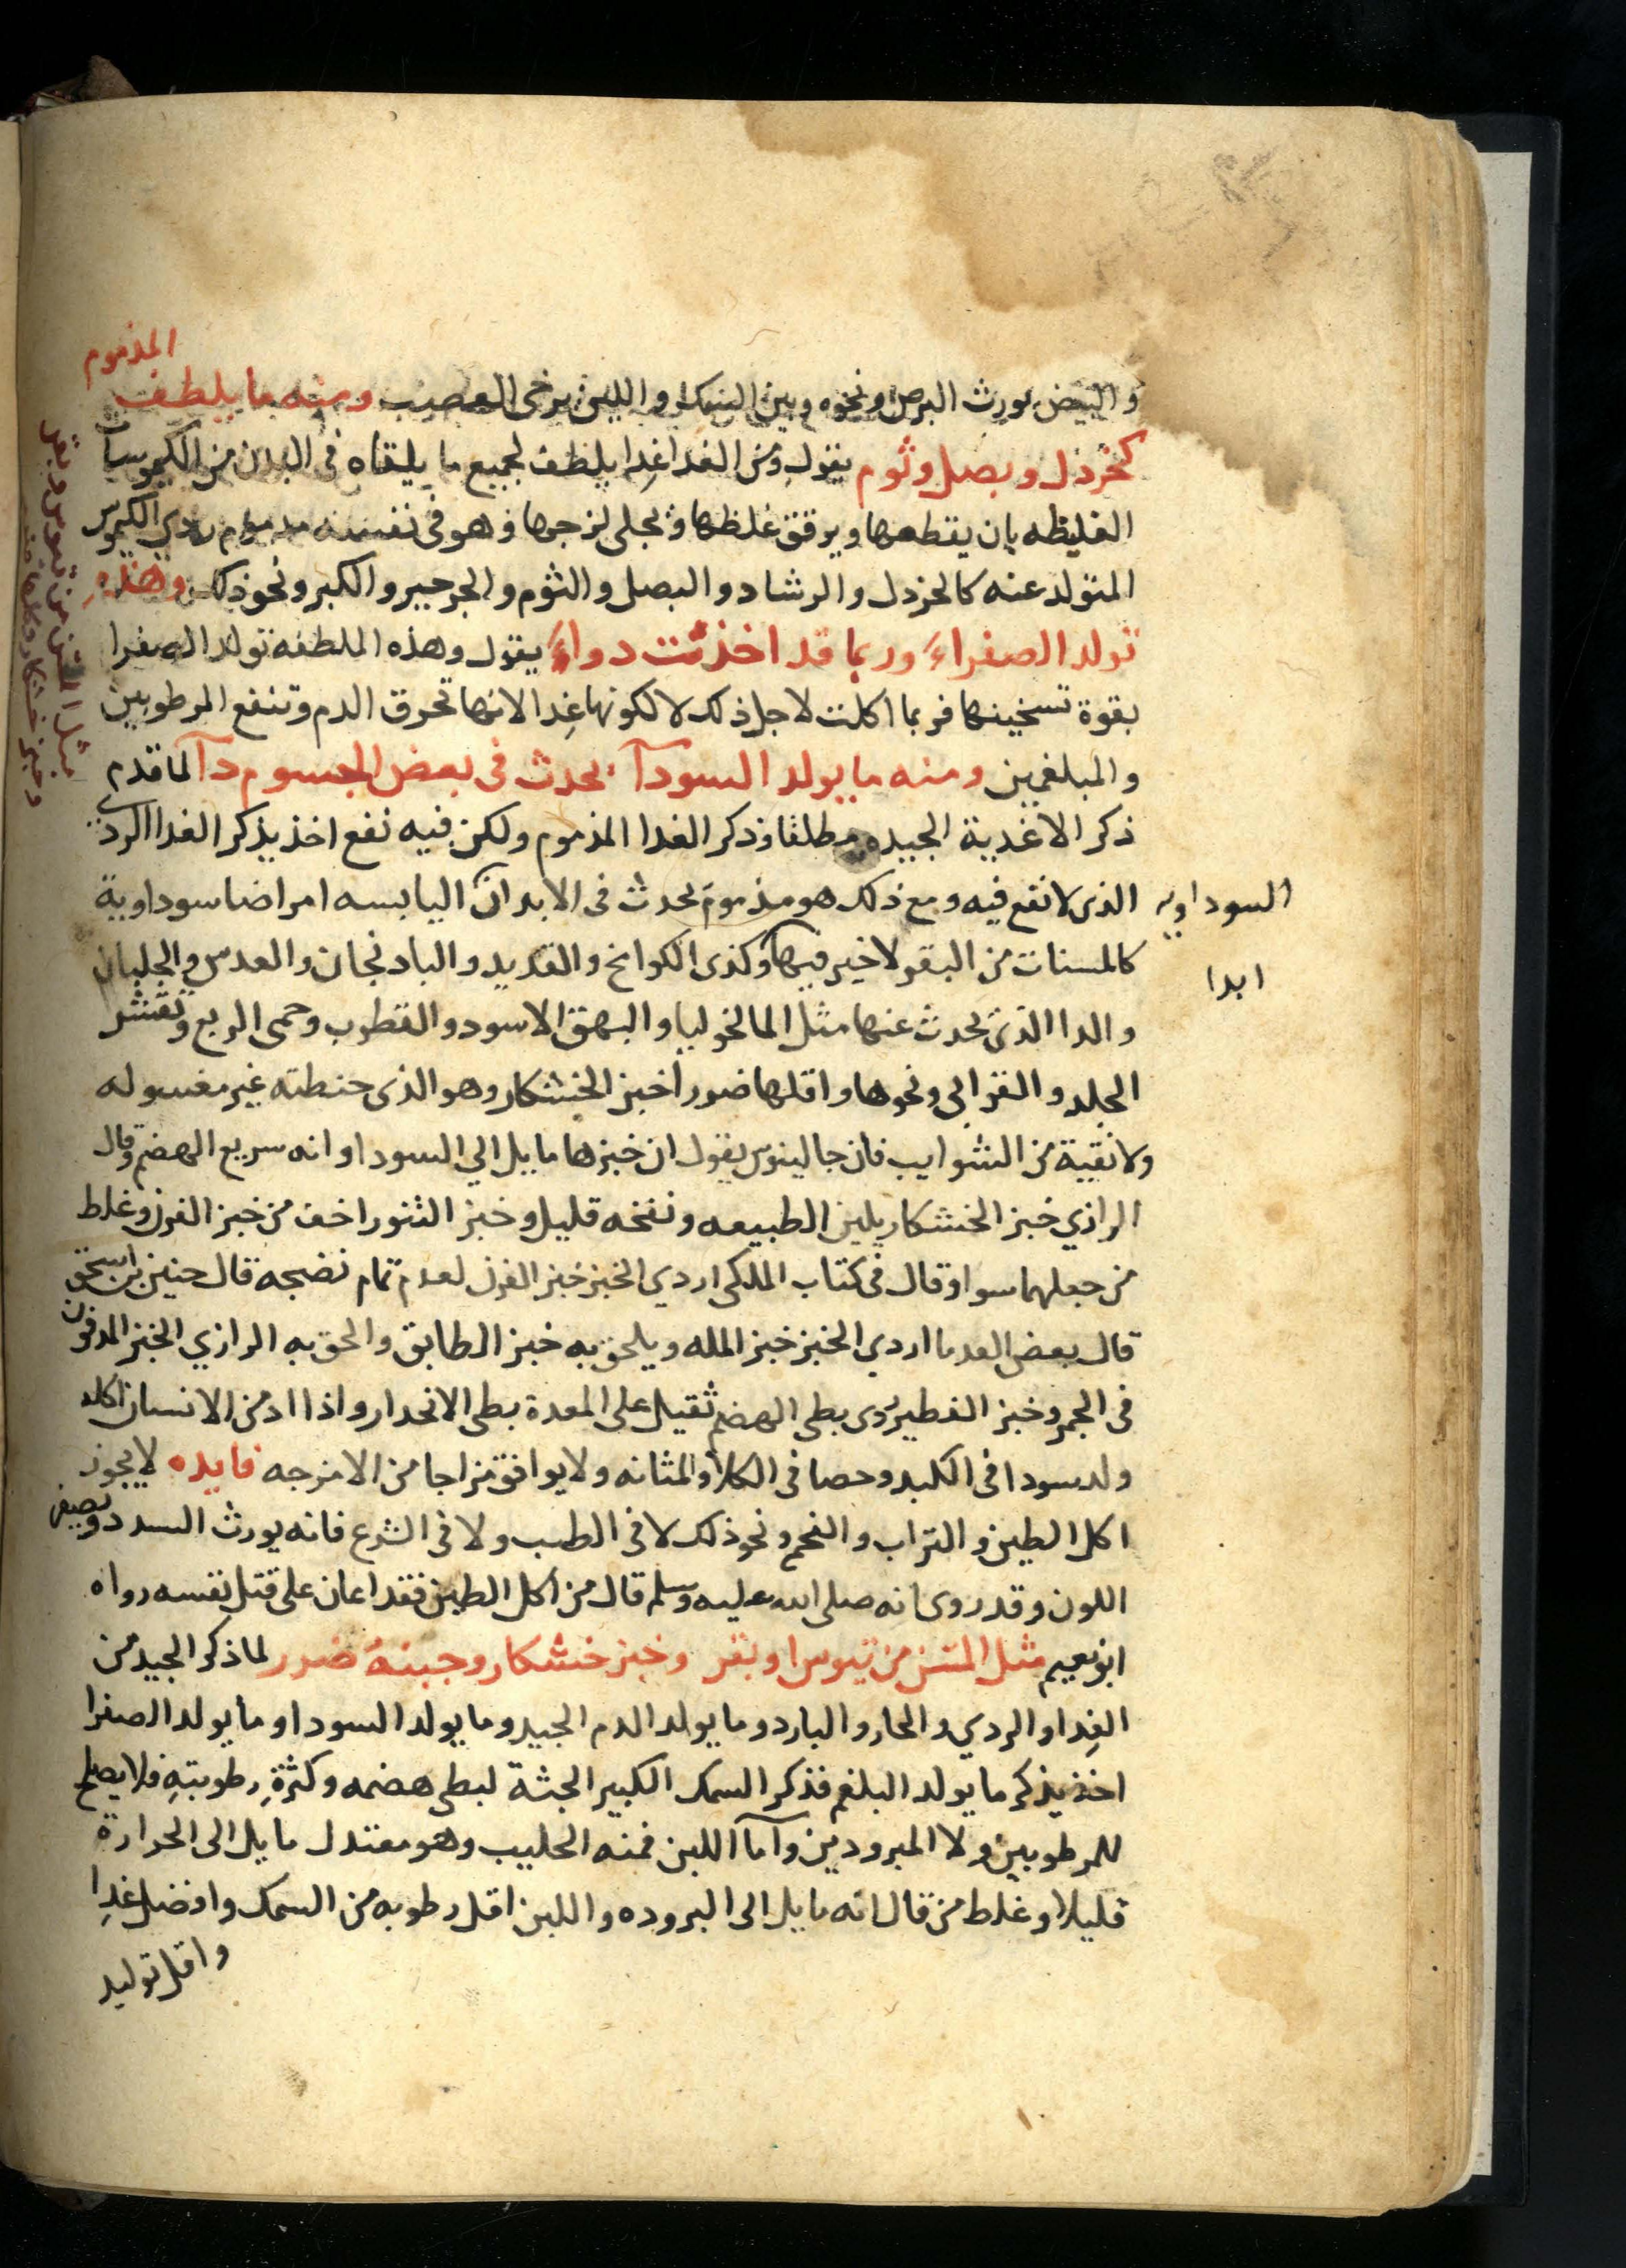 المذموم
والبيض يورث البرص ونحوه وبين السمك واللبن يرخى العصب ومنه ما يلطف
كخردل وبصل وثوم يقول ومن الغدا غدا يلطف لجميع ما يلقاه فى البدن من الكيموسات
الغليظه بان يقطعها ويرقق غلظها ويجلى لزجها وهو فى نفسه مذموم ردى الكيموس
المتولد عنه كالخردل والرشاد والبصل والثوم والجرجير والكبر ونحو ذلك وهذه
تولد الصفراء وربما قد اخذت دواء يقول وهذه الملطفه تولد الصفرا
بقوة تسخينها فربما اكلت لاجل ذلك لا لكونها غدا لانها تحرق الدم وتنفع المرطوبين
والمبلغمين ومنه ما يولد السودآ يحدث فى بعض الجسوم دآ لما قدم
ذكر الاغدية الجيده مطلقا وذكر الغدا المذموم ولكن فيه نفع اخذ يذكر الغدا الردى
الذى لا نفع فيه ومع ذلك هو مذموم يحدث فى الابدان اليابسه امراضا سوداوية
السوداويه
كالمسنات من البقر لا خير فيها وكذى الكوامخ والقديد والبادنجان والعدس والجلبان
ابدا
والدا الذى يحدث عنها مثل المالخوليا والبهق الاسود والقطرب وحمى الربع وتقشر
الجلد والنقرالى ونحوها واقلها ضررا خبز الخشكار وهو الذى حنطته غير مغسوله
ولا نقية من الشوايب فان جالينوس يقول ان خبزها مايل الي السودا وانه سريع الهضم وقال
الرازي خبز الخشكار يلين الطبيعه ونفخه قليل وخبز التنور اخف من خبز الفرن وغلط
من جعلهما سوا وقال فى كتاب الملكى اردي الخبز خبز الفرن لعدم تمام نضجه قال حنين بن اسحق
قال بعض القدما اردي الخبز خبز المله ويلحق به خبز الطابق والحق به الرازي الخبز المدفون
فى الجمر وخبز الفطير ردى بطى الهضم ثقيل على المعدة بطى الانحدار واذا ادمن الانسان اكله
ولد سددا فى الكبد وحصا فى الكلا والمثانه ولا يوافق مزاجا من الامزجه فايده لا يجوز
اكل الطين والتراب والفحم ونحو ذلك لا فى الطب ولا فى الشرع فانه يورث السدد ويصفر
اللون وقد روى انه صلى الله عليه وسلم قال من اكل الطين فقد اعان على قتل نفسه رواه
ابو نعيم مثل المسن من تيوس او بقر وخبز خشكار وجبنه ضرر لما ذكر الجيد من
الغدا والردي والحار والبارد وما يولد الدم الجيد وما يولد السودا وما يولد الصفرا
اخذ يذكر ما يولد البلغم فذكر السمك الكبير الجثة لبطى هضمه وكثرة رطوبته فلا يصلح
للمرطوبين ولا المبرودين وآما اللبن فمنه الحليب وهو معتدل مايل الى الحرارة
قليلا وغلط من قال انه مايل الى البروده واللبن اقل رطوبه من السمك وافضل غدا
واقل توليد
مثل المسن من تيوس وبقر
وخبز خشكار